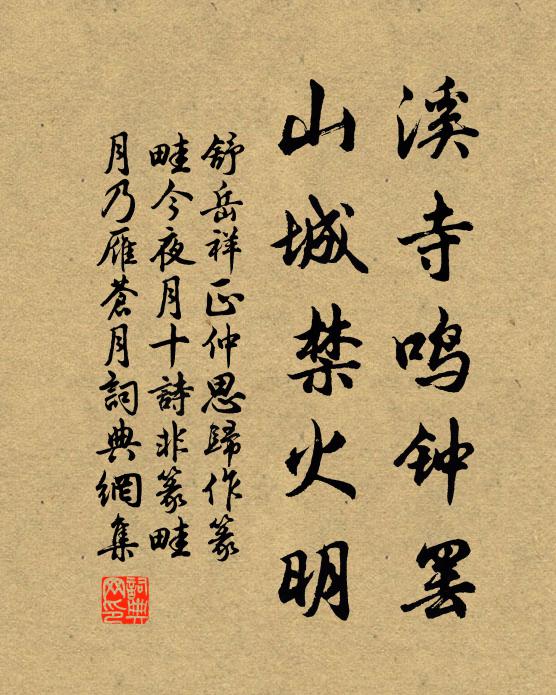 溪寺鸣钟罢
山城禁火明
舒岳祥正仲思歸作篆
畦今夜月十詩非篆畦
月乃雁蒼月詞典網集
詞典
网印